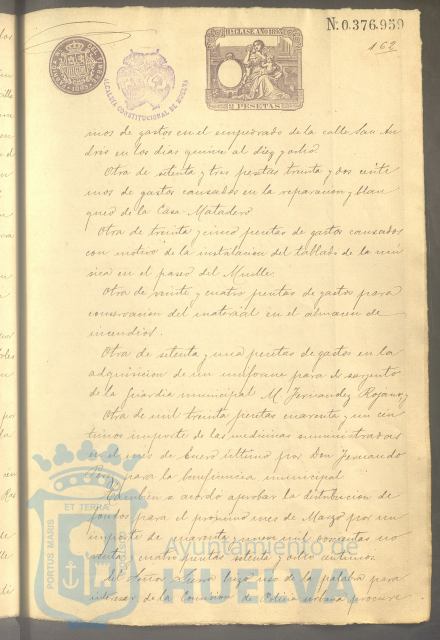 Nº 0.376.959
162
11ª CLASE AÑO 1895
2 PESETAS
ALCALDIA CONSTITUCIONAL DE HUELVA
mos de gastos en el empedrado de la calle San An
drés en los dias quince al diez y ocho
Otra de setenta y tres pesetas treinta y dos cénti
mos de gastos causados en la reparacion y blan
queo de la Casa-Matadero
Otra de treinta y cinco pesetas de gastos causados
con motivo de la instalacion del tablado de la mú
sica en el paseo del Muelle.
Otra de veinte y cuatro pesetas de gastos para
conservacion del material en el almacen de
incendios.
Otra de setenta y una pesetas de gastos en la
adquisicion de un uniforme para el sargento
de la Guardia municipal M. Fernandez
Otra de mil treinta pesetas cuarenta y un cén
timos importe de las medicinas suministradas
en el mes de Enero último por Don Fernando
para la beneficencia municipal
Tambien se acordó aprobar la distribucion de
fondos para el próximo mes de Marzo por un
importe de cuarenta y nueve mil no
venta y cuatro pesetas setenta y céntimos.
El Señor hizo uso de la palabra para
interesar de la Comision de Policia urbana procure
PORTUS MARIS
ET TERRÆ
Ayuntamiento de
HUELVA